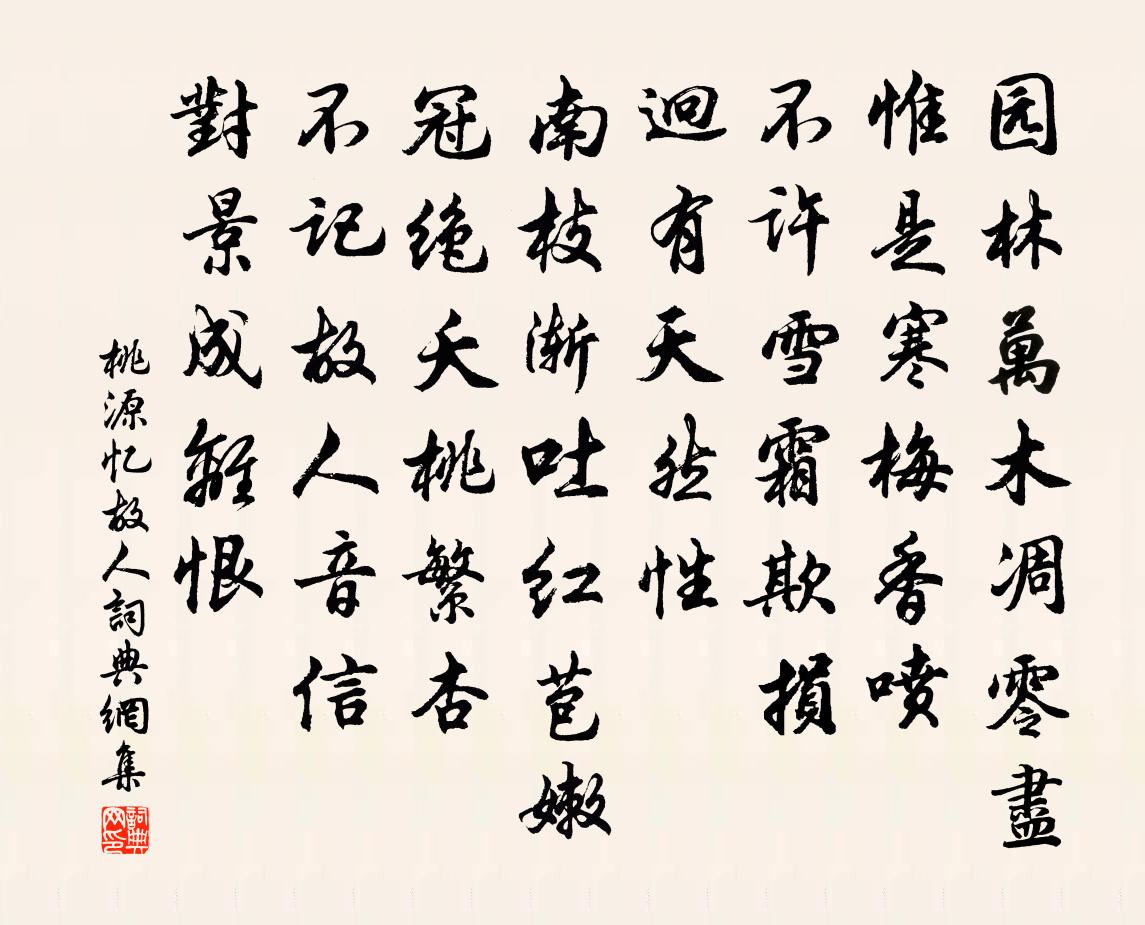 园林萬木凋零盡
惟是寒梅香喷
不许雪霜欺損
迥有天然性
南枝渐吐红苞嫩
冠绝夭桃繁杏
不记故人音信
對景成離恨
桃源忆故人詞典網集
詞典网印